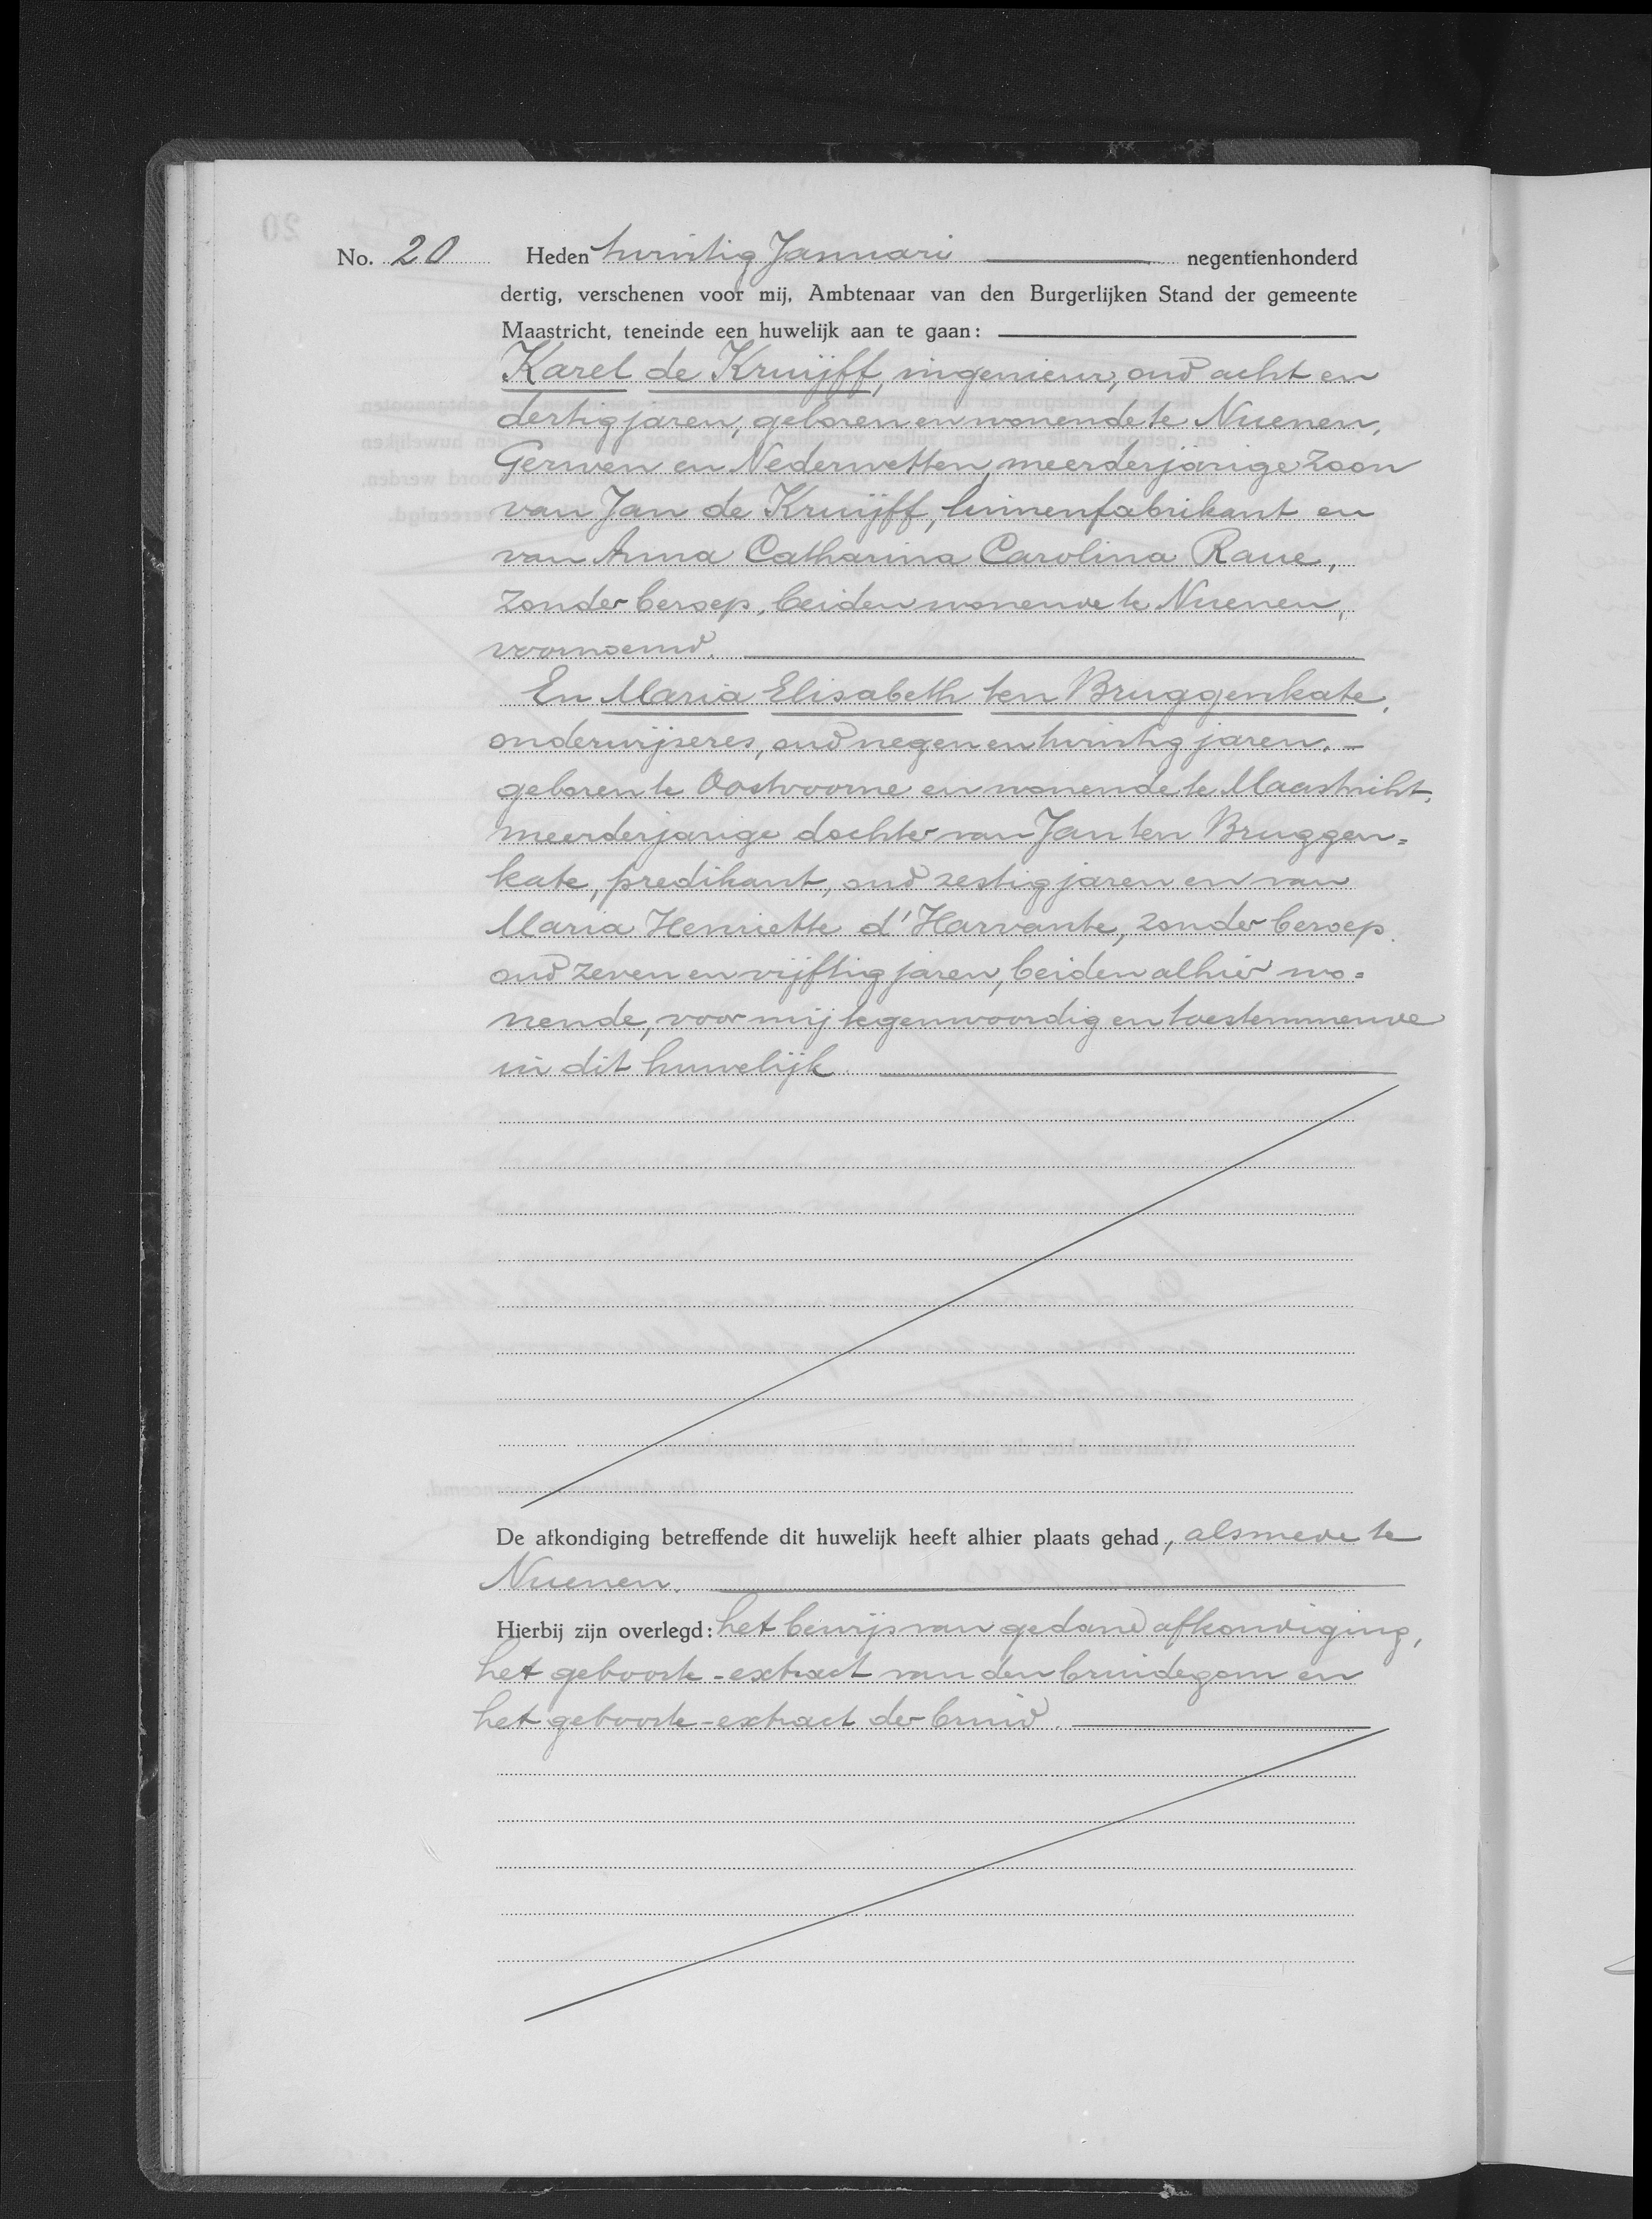 No. 20 Heden twintig Januari negentienhonderd
dertig, verschenen voor mij, Ambtenaar van den Burgerlijken Stand der gemeente
Maastricht, teneinde een huwelijk aan te gaan:
Karel de Kruijff, ingenieur, oud acht en
dertig jaren, geboren en wonende te Nuenen,
Gerwen en Nederwetten, meerderjarige zoon
van Jan de Kruijff, linnenfabrikant en
van Anna Catharina Carolina Raue,
zonder beroep, beiden wonende te Nuenen,
voornoemd.
En Maria Elisabeth ten Bruggenkate,
onderwijzeres, oud negen en twintig jaren,
geboren te Oostvoorne en wonende te Maastricht,
meerderjarige dochter van Jan ten Bruggen=
kate, predikant, oud zestig jaren en van
Maria Henriette d'Harvante, zonder beroep
oud zeven en vijftig jaren, beiden alhier wo=
nende, voor mij tegenwoordig en toestemmende
in dit huwelijk
De afkondiging betreffende dit huwelijk heeft alhier plaats gehad, alsmede te
Nuenen.
Hierbij zijn overlegd: het bewijs van gedane afkondiging,
het geboorte-extract van den bruidegom en
het geboorte-extract der bruid.